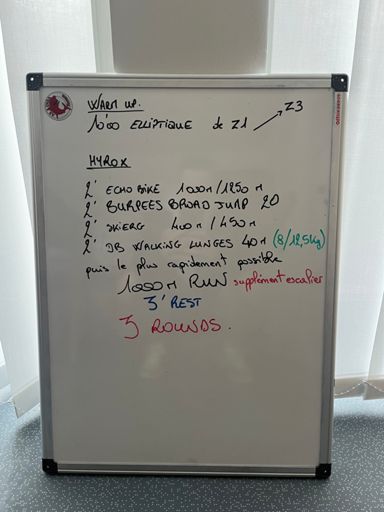 WARM UP.
10'00 ELLIPTIQUE de Z1 → Z3
HYROX
2' ECHO BIKE 1000m/1250m
2' BURPEES BROAD JUMP 20
2' SKIERG 400m/450m
2' DB WALKING LUNGES 40m (8/12,5kg)
puis le plus rapidement possible
1000m RUN supplément escalier
3' REST
3 ROUNDS.